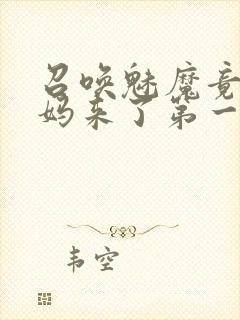 召唤魅魔竟
妈来了第一
韦空